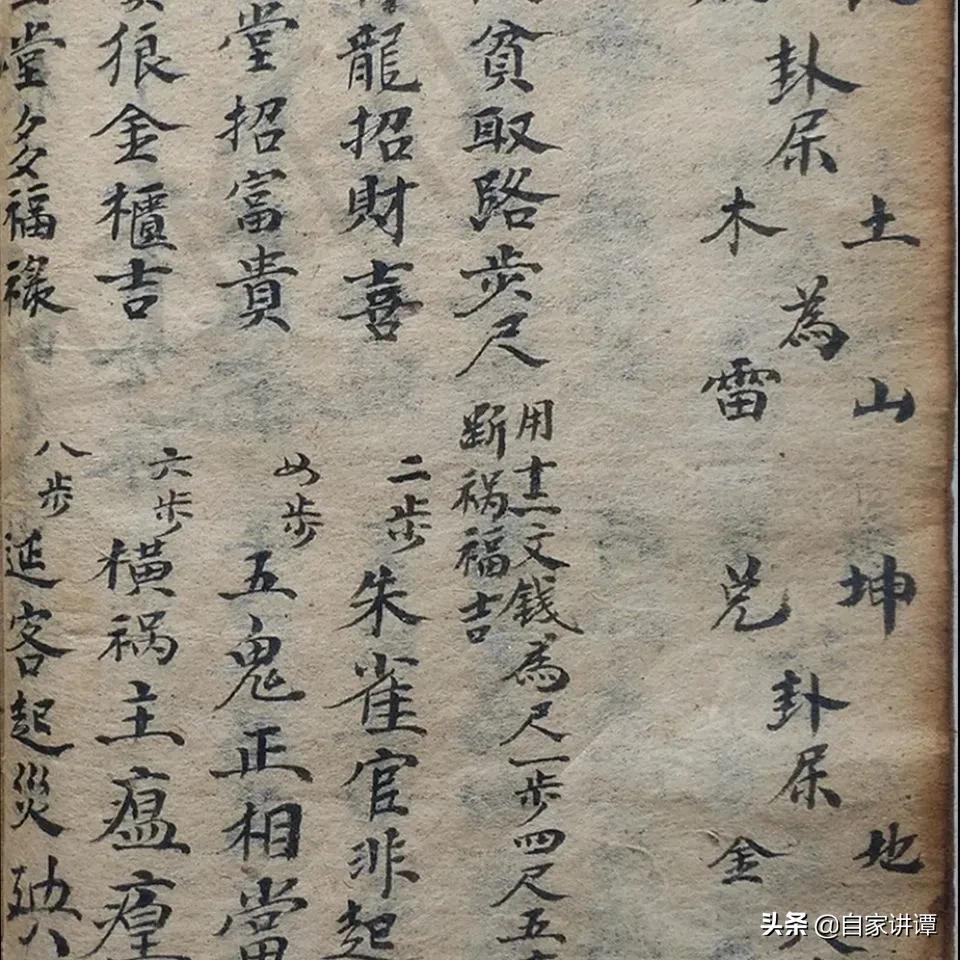 土山 坤 地
卦属為 卦属
木雷 兑 金
貧取路步尺
用十二文钱為尺一步四尺五
断祸福吉
龍招財喜 二步 朱雀官非起
堂招富貴 四步 五鬼正相當
狼金櫃吉 六步 横祸主瘟瘽
堂多福祿 八步 延客起災
头条 @自家讲谭